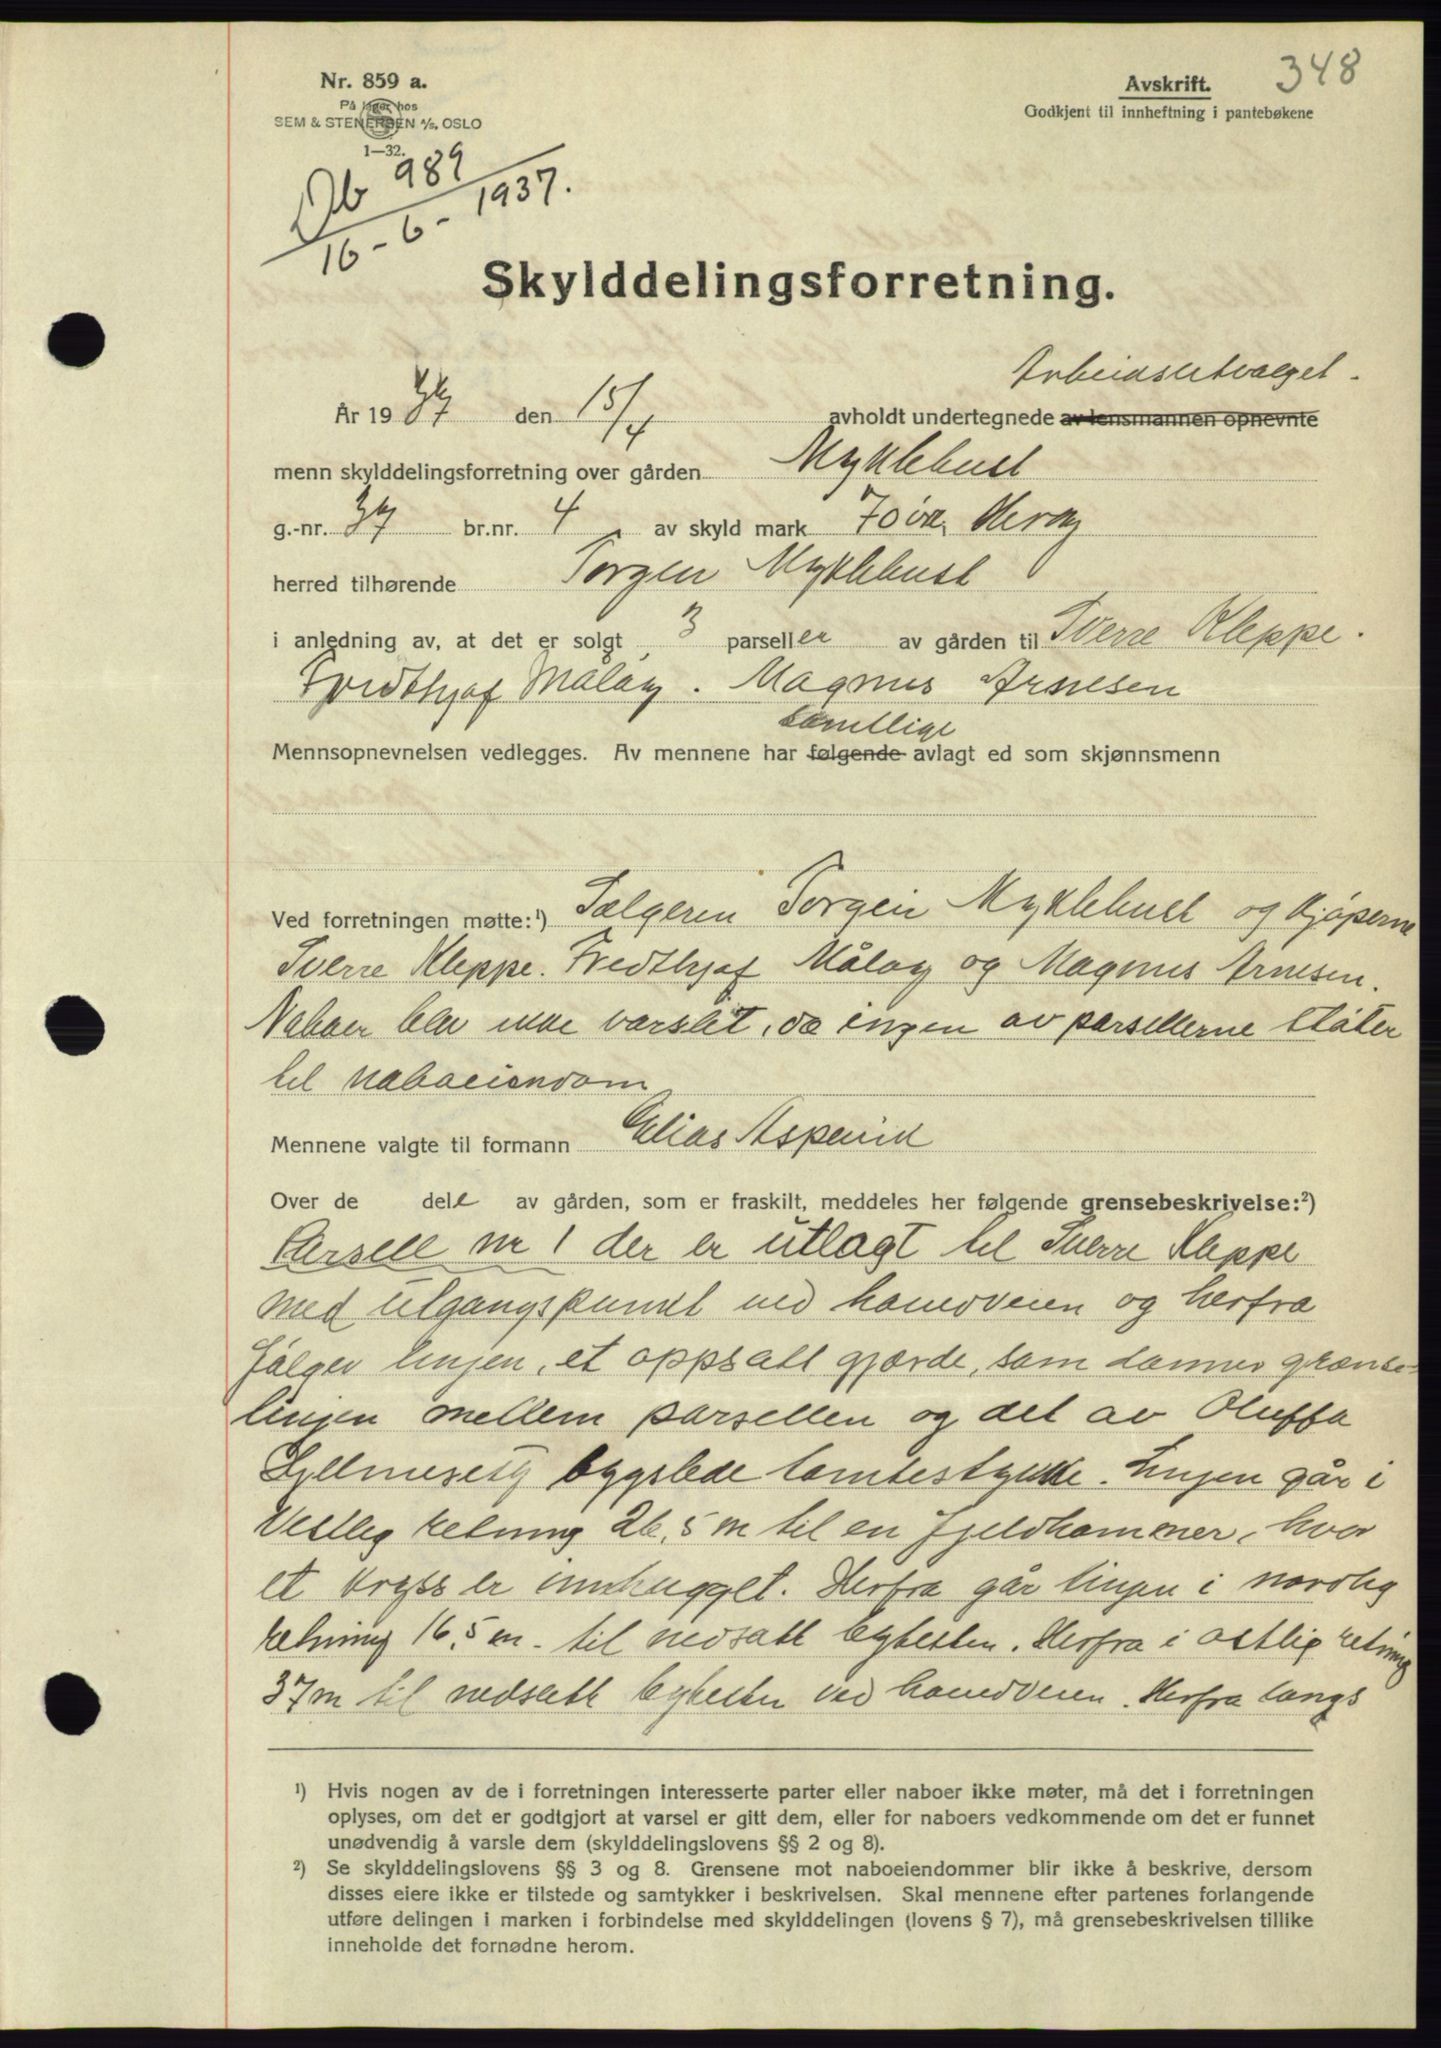 348
Nr. 859 a.
På lager hos
SEM & STENERSEN A/S, OSLO
1—32.
Avskrift.
Godkjent til innheftning i pantebøkene
Db 989
16-6-1937.
Skylddelingsforretning.
Arbeidsutvalget.
År 1937 den 15/4 avholdt undertegnede av lensmannen opnevnte
menn skylddelingsforretning over gården Myklebust
g.-nr. 37 br.nr. 4 av skyld mark 70 øre, Herøy
herred tilhørende Torgeir Myklebust
i anledning av, at det er solgt 3 parseller av gården til Sverre Kleppe.
Fridthjof Måløy. Magnus Arnesen
samtlige
Mennsopnevnelsen vedlegges. Av mennene har følgende avlagt ed som skjønnsmenn
Ved forretningen møtte:¹) Sælgeren Torgeir Myklebust og kjøperne
Sverre Kleppe. Fredthjof Måløy og Magnus Arnesen.
Naboer blev ikke varslet, da ingen av parsellerne støter
til naboeiendom
Mennene valgte til formann Elias Aspevik
Over de dele av gården, som er fraskilt, meddeles her følgende grensebeskrivelse:²)
Parsell nr 1 der er utlagt til Sverre Kleppe
med utgangspunkt ved hovedveien og herfra
følger linjen, et oppsatt gjærde, som danner grænse-
linjen mellem parsellen og det av Oluffa
bygslede tomtestykke. Linjen går i
Vestlig retning 26,5 m til en fjeldhammer, hvor
et kryss er innhugget. Herfra går linjen i nordlig
retning 16,5 m. til nedsatt bytesten. Herfra i østlig retning
37 m til nedsatt bytesten ved hovedveien. Herfra langs
¹) Hvis nogen av de i forretningen interesserte parter eller naboer ikke møter, må det i forretningen
oplyses, om det er godtgjort at varsel er gitt dem, eller for naboers vedkommende om det er funnet
unødvendig å varsle dem (skylddelingslovens §§ 2 og 8).
²) Se skylddelingslovens §§ 3 og 8. Grensene mot naboeiendommer blir ikke å beskrive, dersom
disses eiere ikke er tilstede og samtykker i beskrivelsen. Skal mennene efter partenes forlangende
utføre delingen i marken i forbindelse med skylddelingen (lovens § 7), må grensebeskrivelsen tillike
inneholde det fornødne herom.